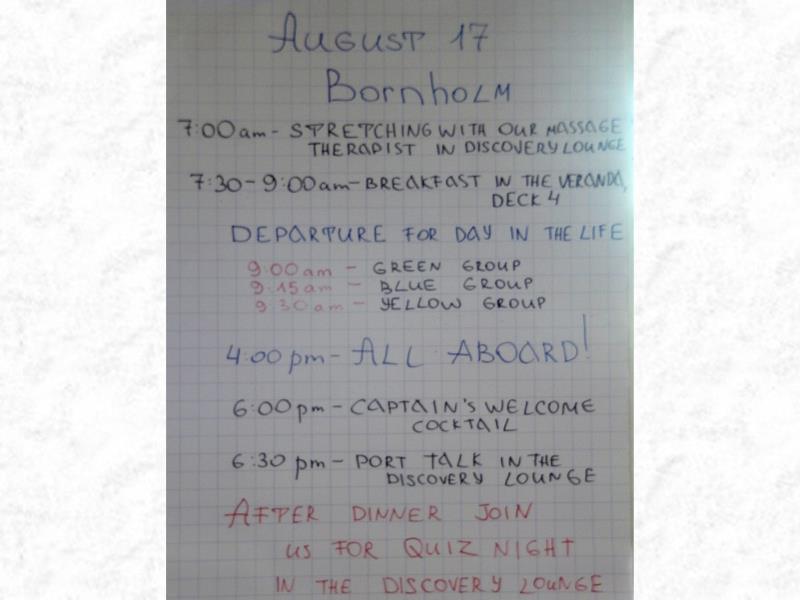 AUGUST 17
BornhoLM
7:00 am - STRETCHING WITH OUR MASSAGE
THERAPIST IN DISCOVERY LOUNGE
7:30 - 9:00 am - BREAKFAST IN THE VERANDA,
DECK 4
DEPARTURE FOR DAY IN THE LIFE
9:00 am - GREEN GROUP
9:15 am - BLUE GROUP
9:30 am - YELLOW GROUP
4:00 pm - ALL ABOARD!
6:00 pm - CAPTAIN'S WELCOME
COCKTAIL
6:30 pm - PORT TALK IN THE
DISCOVERY LOUNGE
AFTER DINNER JOIN
US FOR QUIZ NIGHT
IN THE DISCOVERY LOUNGE